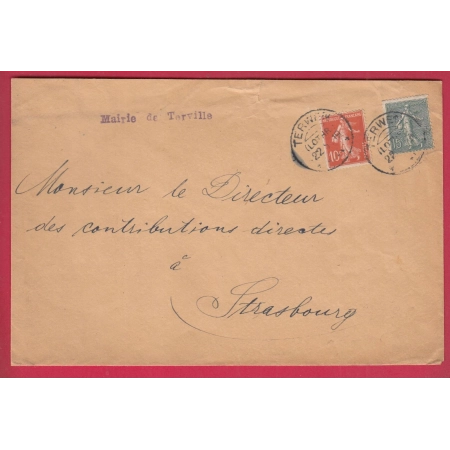 Mairie de Terville
TERWE
TERWE
10
15
Monsieur le Directeur
des contributions directes
à
Strasbourg